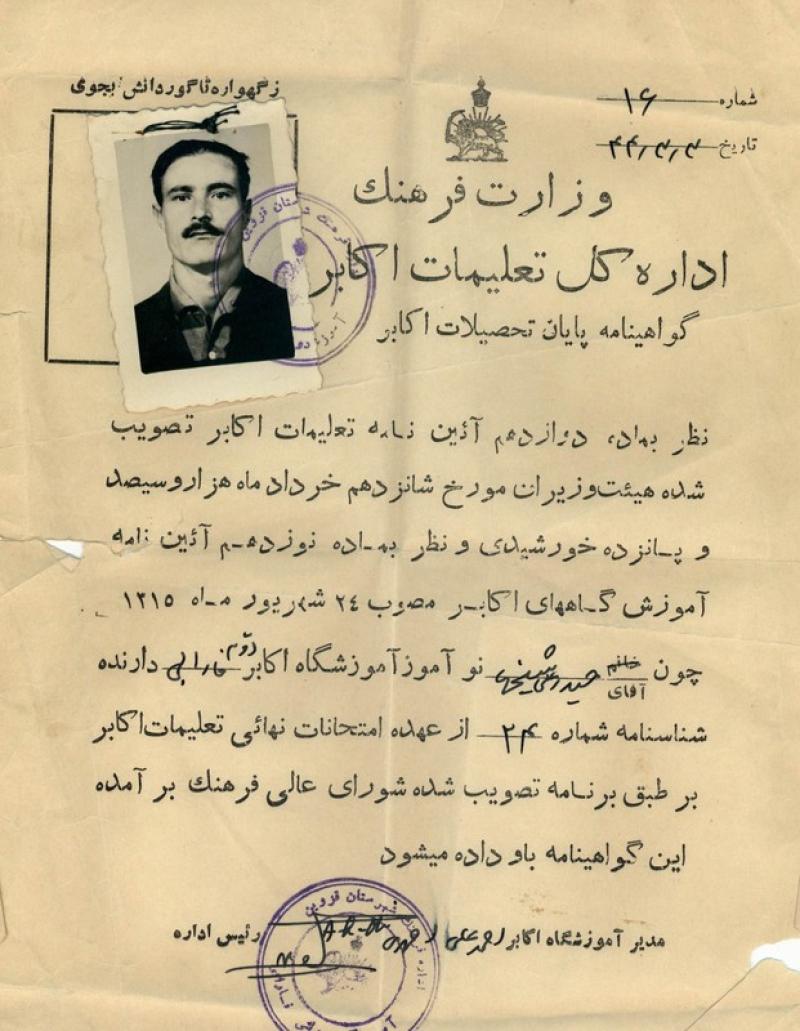 ز گهواره تا گور دانش بجوی
شماره ۱۶
تاریخ ۴۴/۳/۳
وزارت فرهنك
اداره کل تعلیمات اکابر
گواهینامه پایان تحصیلات اکابر
نظر بماده دوازدهم آئین نامه تعلیمات اکابر تصویب
شده هیئت وزیران مورخ شانزدهم خرداد ماه هزار و سیصد
و پانزده خورشیدی و نظر بماده نوزدهم آئین نامه
آموزش گاههای اکابر مصوب ٢٤ شهریور ماه ۱۳۱۵
چون خانم آقای نو آموز آموزشگاه اکابر دوم فارابی دارنده
شناسنامه شماره ۲۴ از عهده امتحانات نهائی تعلیمات اکابر
بر طبق برنامه تصویب شده شورای عالی فرهنك بر آمده
این گواهینامه باو داده میشود
مدیر آموزشگاه اکابر
رئیس اداره
شهرستان قزوین